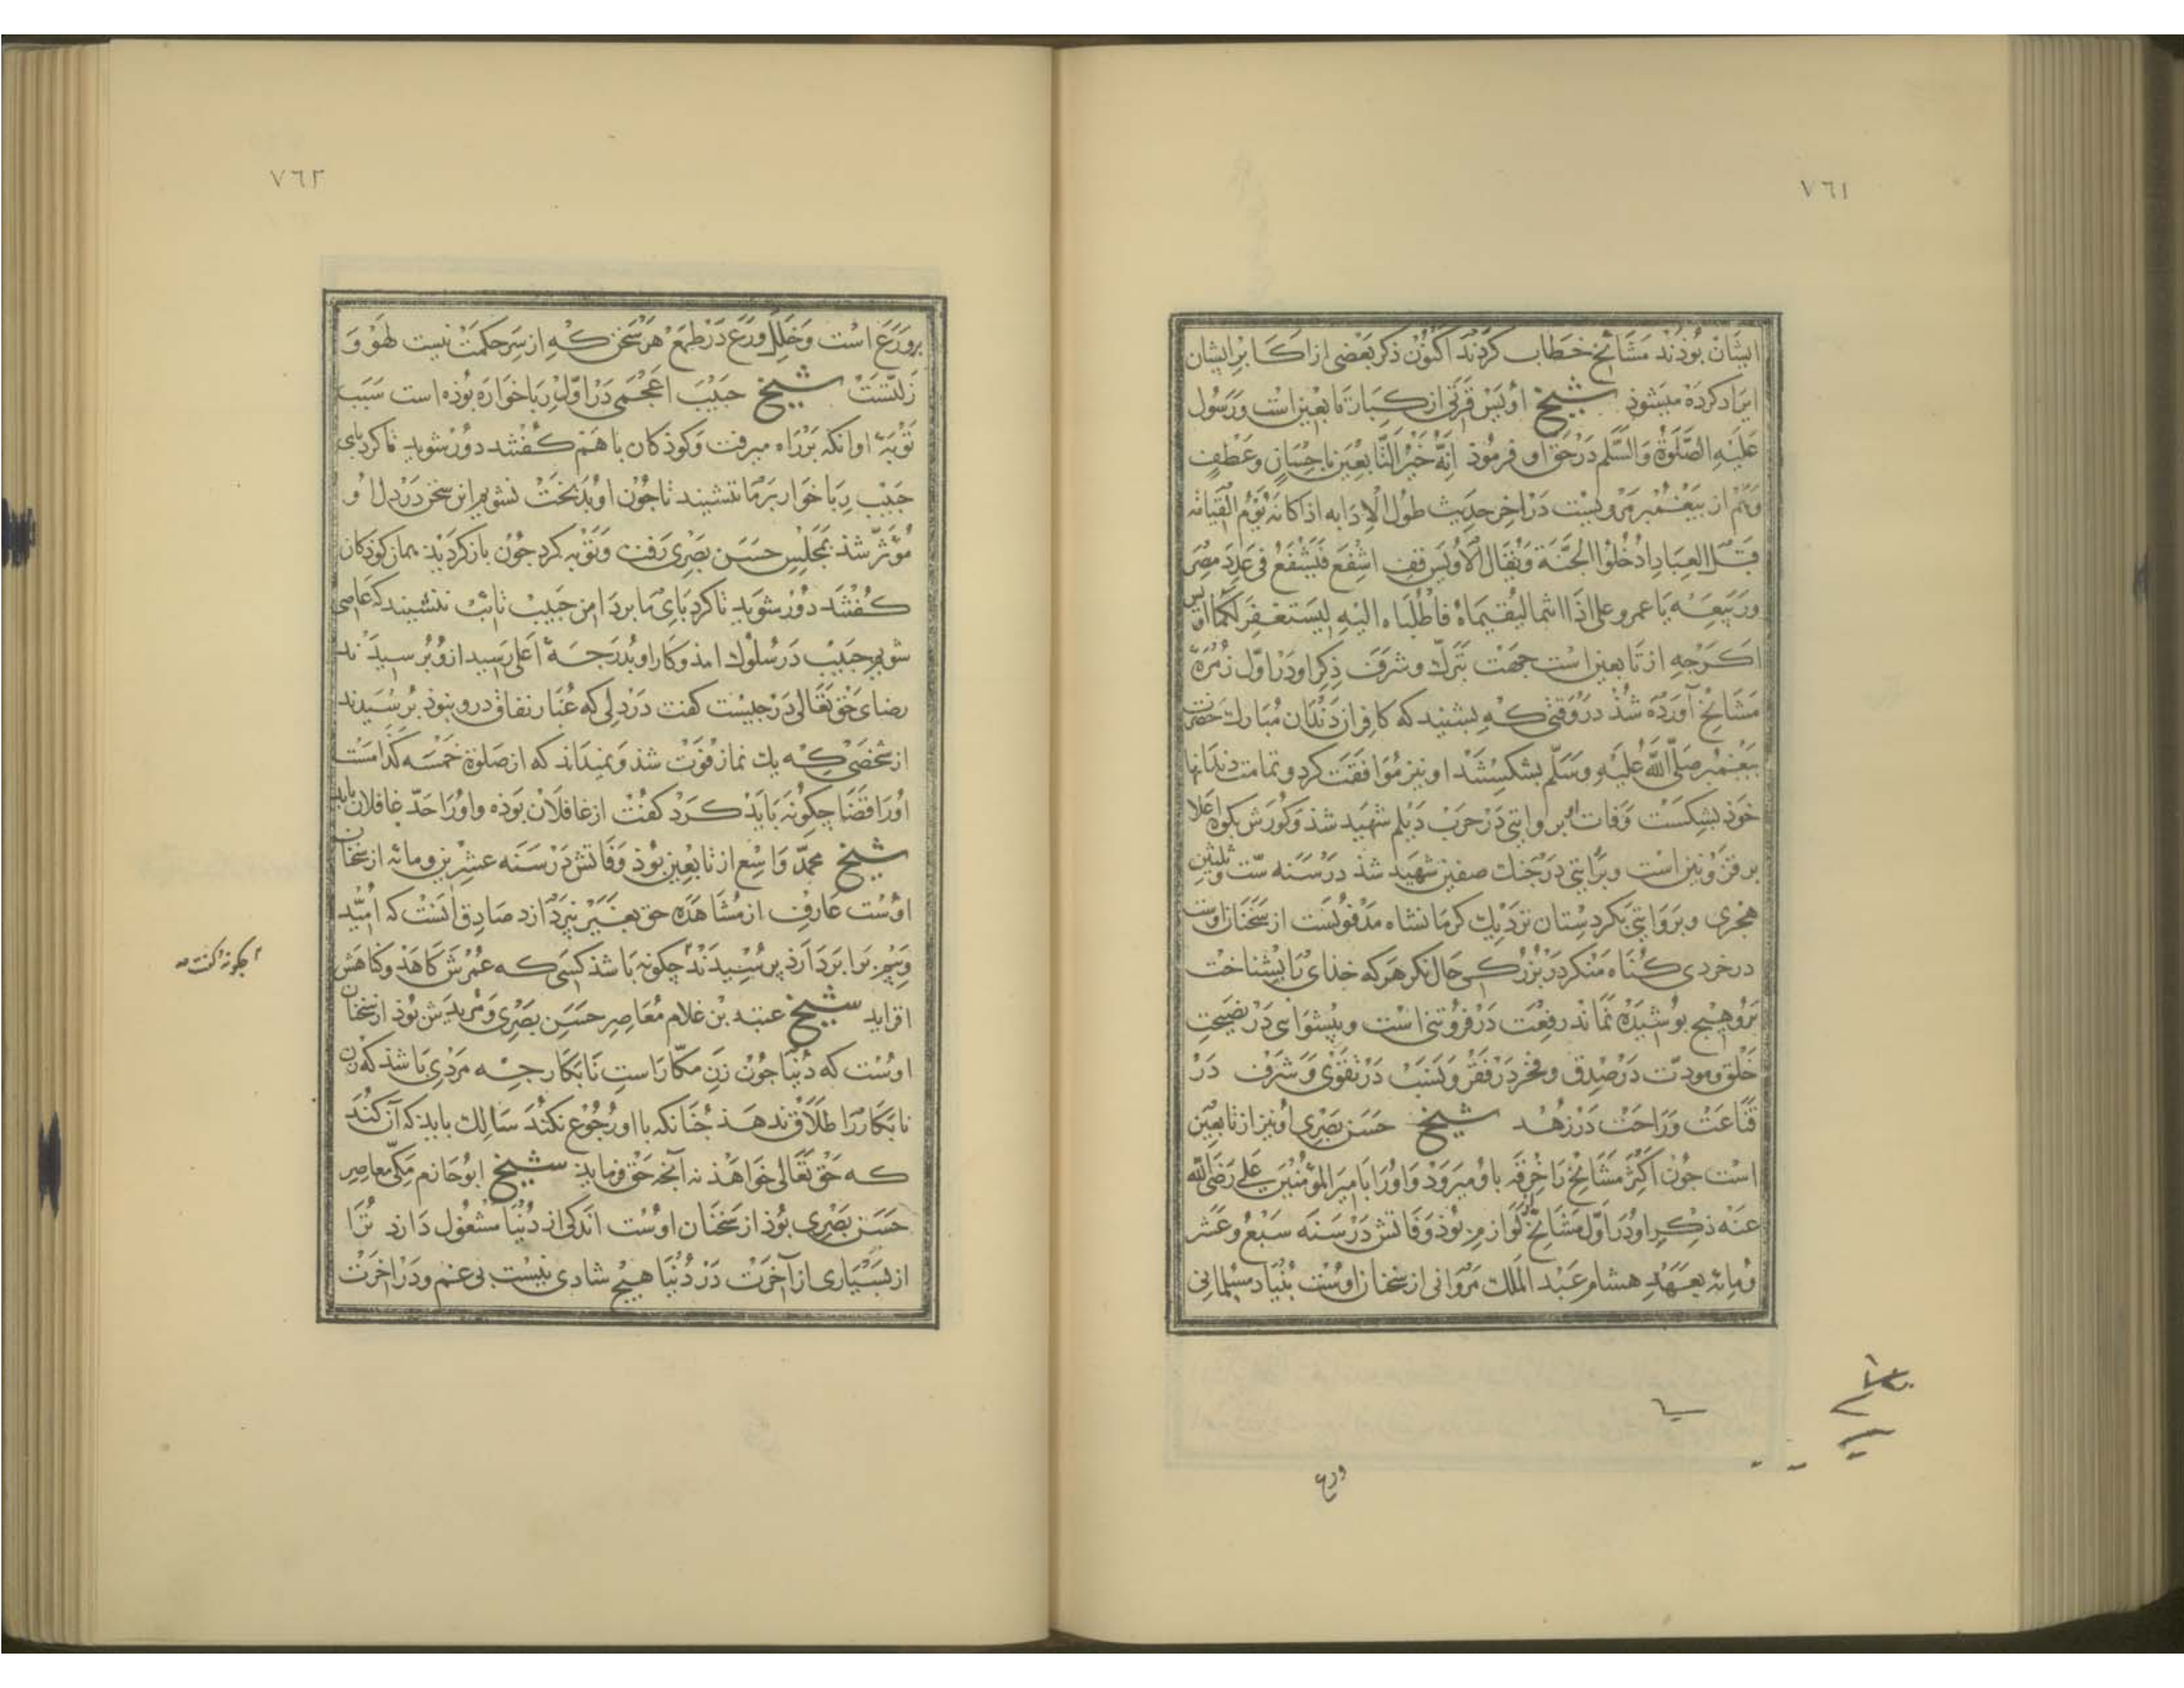 ٧٦١
ایشان بوذند مشائخ خطاب کردند اکنون ذکر بعضی از اکابر ایشان
ایراد کرده میشوذ شیخ اویس قرنی از کبار تابعین است و رسول
علیه الصلوة والسلم در حق او فرموذ انه خیر التابعین باحسان وعطف
وهم از بیغمبر مرویست در اخر حدیث طول الاذابه اذا کان یوم القیامه
قیل للعباد ادخلوا الجنة ویقال لاویس قف اشفع فیشفع فی عدد مضر
وربیعه یا عمر و علی اذا انتما لیقیماه فاطلباه الیه لیستغفر لکما اویس
اکرجه از تابعین است جهت تبرک و شرف ذکر او در اول زمره
مشائخ آورده شذ در وقتی که بشنید که کافران دندان مبارک حضرت
بیغمبر صلی الله علیه وسلم بشکستند او نیز موافقت کرد و تمامت دندانها
خوذ بشکست وفات بروایتی در حرب دیلم شهید شذ و کورش بکوه اعلا
بر قزوین است و بروایتی در جنک صفین شهید شذ در سنه ست وثلثین
هجری و بروایتی بکردستان نزدیک کرمانشاه مدفونست از سخنان اوست
در خردی کناه منکر در بزرکی حال نکر هر که خذای را بشناخت
برو هیچ بوشیده نماند رفعت در فروتنی است و بیشوایی در نصیحت
خلق و مودت در صدق و فخر در فقر و نسب در تقوی و شرف در
قناعت و راحت در زهد شیخ حسن بصری او نیز از تابعین
است جون اکثر مشائخ را خرقه باو میروذ و او را با میر المؤمنین علی رضی الله
عنه ذکر او در اول مشائخ بوذ وفاتش در سنه سبع وعشر
ومائه بعهد هشام عبد الملک مروانی از سخنان اوست بنیاد مسلمانی
ورع
٧٦٢
بر ورع است و خلل ورع در طمع هر سخن که از سر حکمت نیست لهو و
زلتست شیخ حبیب اعجمی در اول ربا خواره بوذه است سبب
توبه او انکه برراه میرفت و کوذکان با هم کفتند دور شوید تا کرد بای
حبیب ربا خوار بر ما ننشیند تا جون او بدبخت نشویم این سخن در دل او
مؤثر شذ بمجلس حسن بصری رفت و توبه کرد جون باز کردید همان کوذکان
کفتند دور شوید تا کرد بای ما بر دامن حبیب تائب ننشیند که عاصی
شویم حبیب در سلوک امذ و کار او بدرجه اعلی رسید ازو برسیدند
رضای حق تعالی در جیست کفت در دلی که غبار نفاق درو نبوذ برسیدند
از شخصی که یک نماز فوت شذ و نمیداند که از صلوة خمسه کدامست
او را قضا چکونه بایذ کرد کفت از غافلان بوذه و او را حد غافلان باید
شیخ محمد واسع از تابعین بوذ وفاتش در سنه عشرین ومائه از سخنان
اوست عارف از مشاهده حق بغیر نپردازد صادق انست که امید
و بیم برابر دارذ پرسیدند چکونه باشذ کسی که عمرش کاهذ و کناهش
افزاید شیخ عتبه بن غلام معاصر حسن بصری و مریدش بوذ از سخنان
اوست که دنیا جون زن مکار است نابکار جه مردی باشذ که زن
نابکار را طلاق ندهذ جنانکه با او رجوع نکند سالک بایذ که آن کند
که حق تعالی خواهذ نه آنجه حق فرماید شیخ ابو حازم مکی معاصر
حسن بصری بوذ از سخنان اوست اندکی از دنیا مشغول دارد ترا
از بسیاری از آخرت در دنیا هیچ شادی نیست بی غم و در اخرت
چکونه کفت